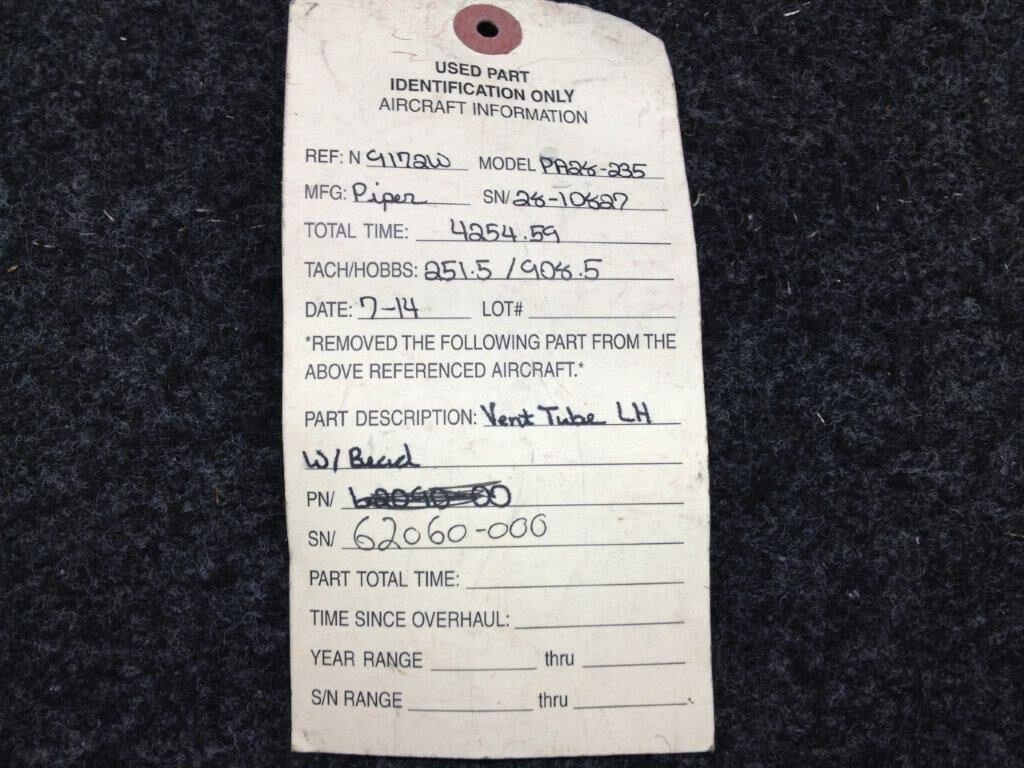 USED PART
IDENTIFICATION ONLY
AIRCRAFT INFORMATION
REF: N 9172W MODEL PA28-235
MFG: Piper SN/ 28-10827
TOTAL TIME: 4254.59
TACH/HOBBS: 251.5 / 908.5
DATE: 7-14 LOT#
*REMOVED THE FOLLOWING PART FROM THE
ABOVE REFERENCED AIRCRAFT.*
PART DESCRIPTION: Vent Tube LH
W/ Bead
PN/
SN/ 62060-000
PART TOTAL TIME:
TIME SINCE OVERHAUL:
YEAR RANGE thru
S/N RANGE thru